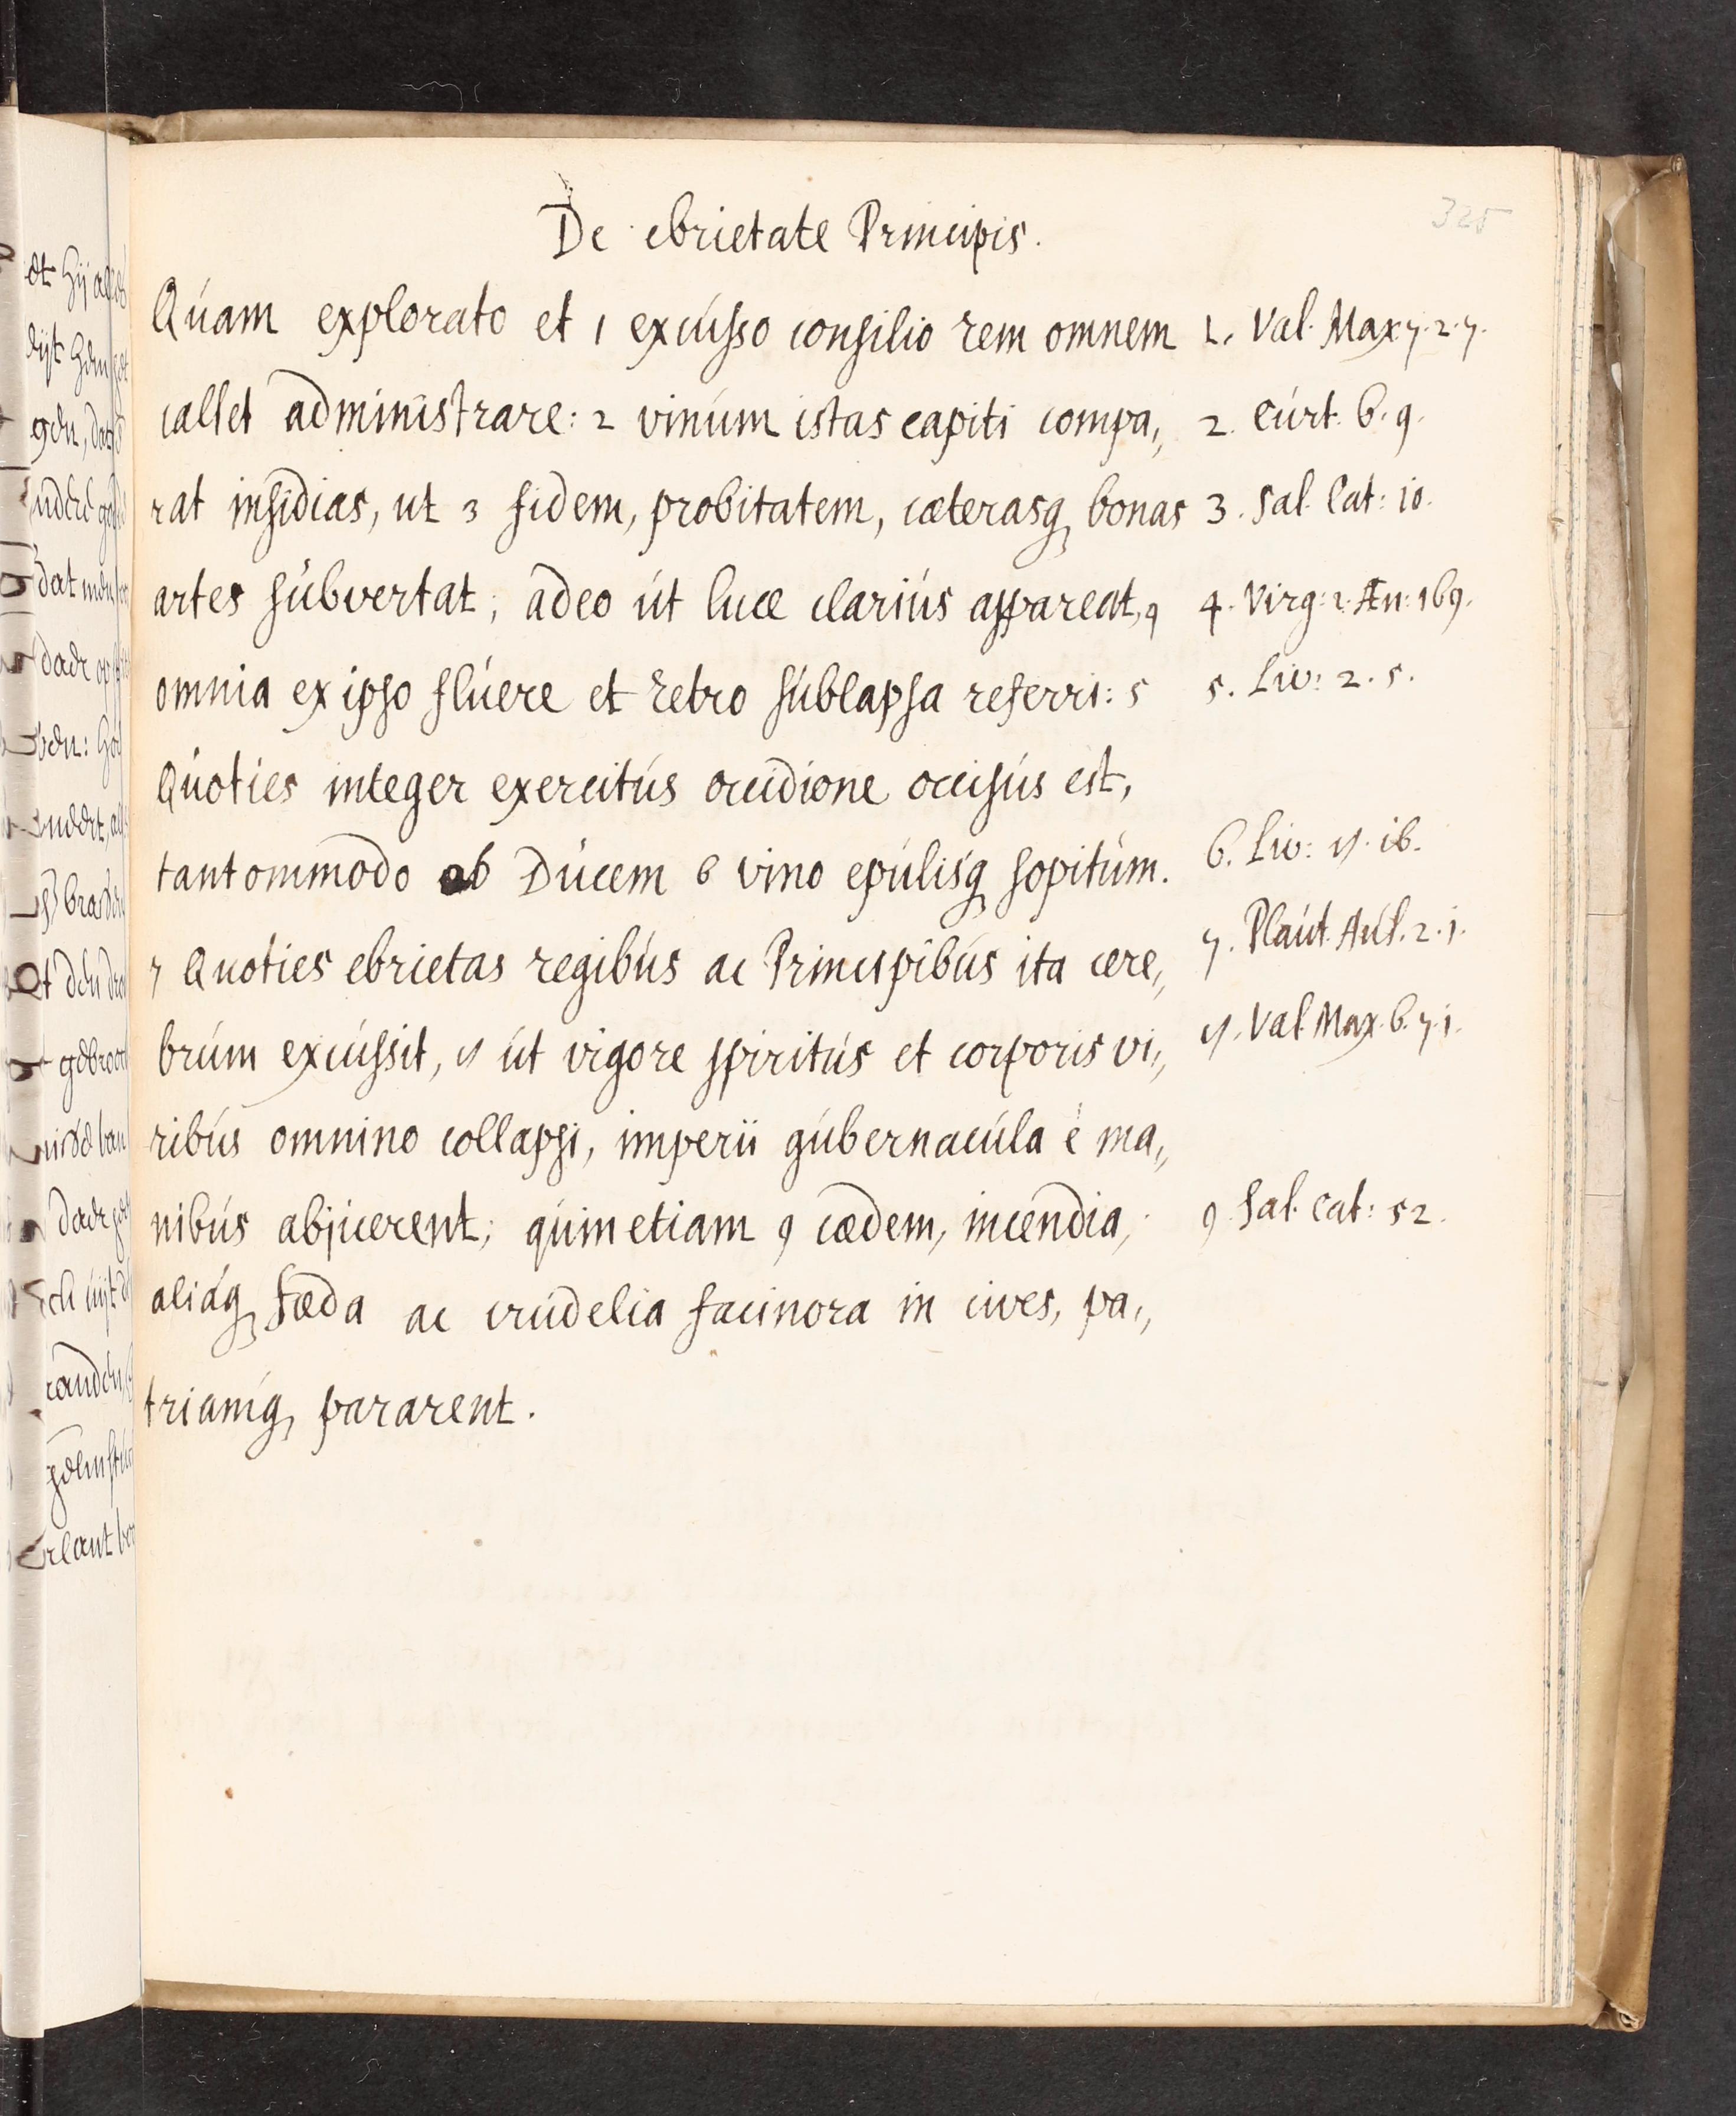 325
De ebrietate Principis.
Quam explorato et 1 excusso consilio rem omnem
callet administrare: 2 vinum istas capiti compa,,
rat insidias, ut 3 fidem, probitatem, cæterasq bonas
artes subvertat; adeo ut luce clarius appareat, 4
omnia ex ipso fluere et retro sublapsa referri: 5
Quoties integer exercitus occidione occisus est,
tantommodo ob Ducem 6 vino epulisq sopitum.
7 Quoties ebrietas regibus ac Principibus ita cere,,
brum excussit, 8 ut vigore spiritus et corporis vi,,
ribus omnino collapsi, imperii gubernacula è ma,,
nibus abjicerent; quin etiam 9 cædem, incendia,
aliáq fæda ac crudelia facinora in cives, pa,,
triamq pararent.
1. Val. Max 7. 2. 7.
2. Curt. 6. 9.
3. Sal. Cat: 10.
4. Virg: 2. Æn: 169.
5. Liv: 2. 5.
6. Liv: 8. 16.
7. Plaut. Aul. 2. 1.
8. Val. Max. 6. 7. 1.
9. Sal. Cat: 52.